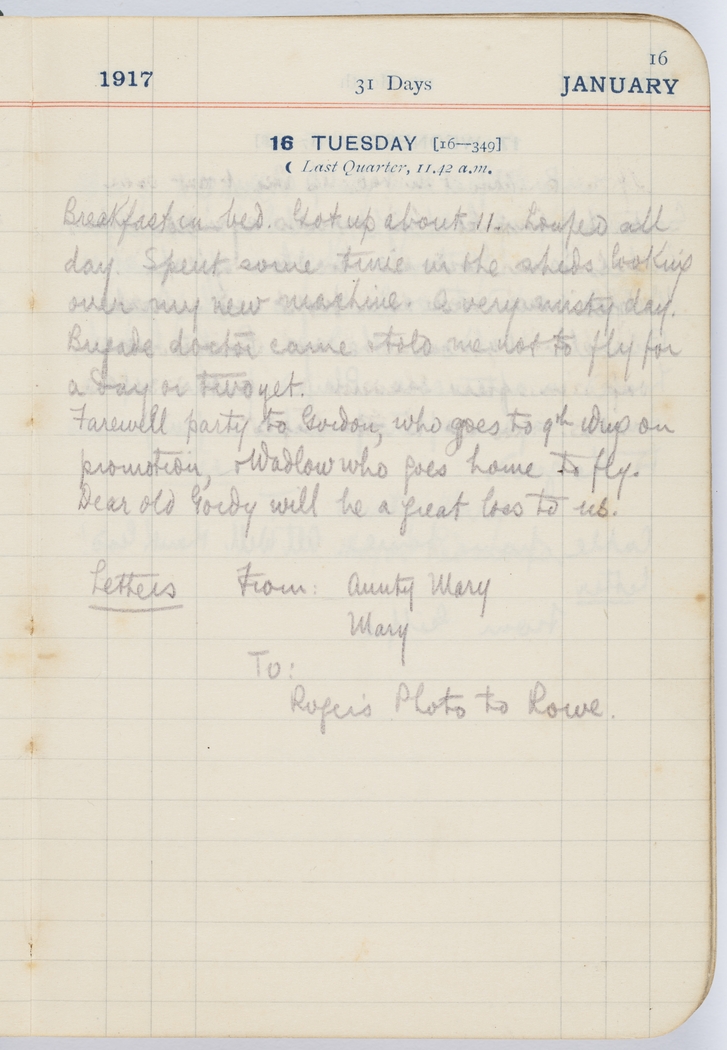 16
1917 31 Days JANUARY
16 TUESDAY [16—349]
☾ Last Quarter, 11.42 a.m.
Breakfast in bed. Got up about 11. Loafed all
day. Spent some time in the sheds looking
over my new machine. A very misty day.
Brigade doctor came & told me not to fly for
a day or two yet.
Farewell party to Gordon, who goes to 9th Wing on
promotion, & Wadlow who goes home to fly.
Dear old Gordy will be a great loss to us.
Letters From: Aunty Mary
Mary
To:
Photo to Rowe.